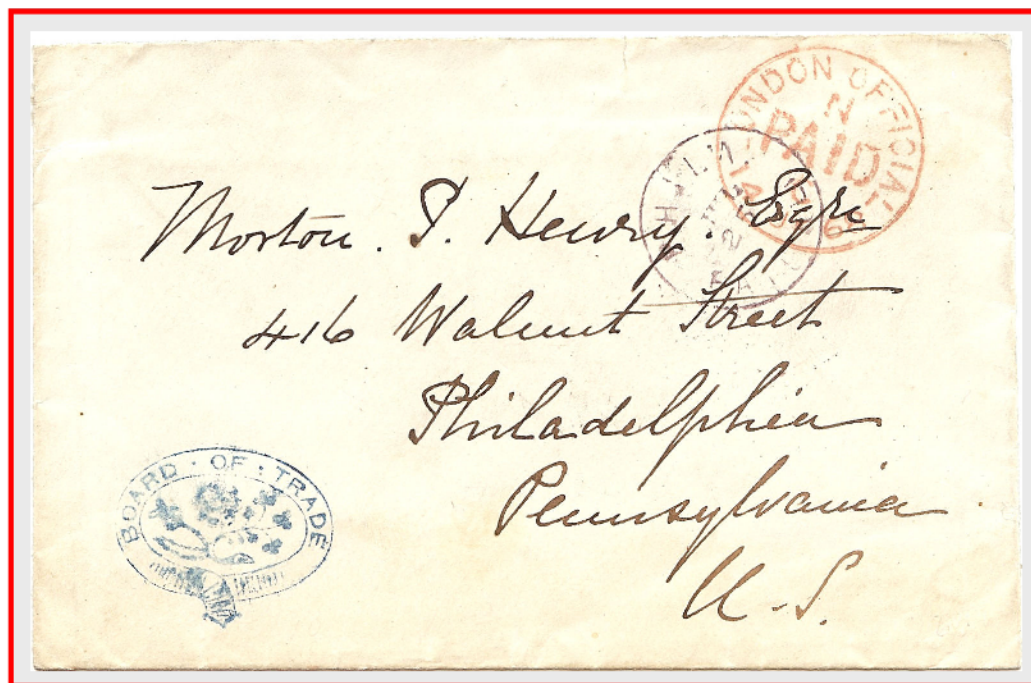 LONDON OFFICIAL
N
PAID
Morton. P. Henry. Esqre
416 Walnut Street
Philadelphia
Pennsylvania
U.S.
BOARD · OF · TRADE